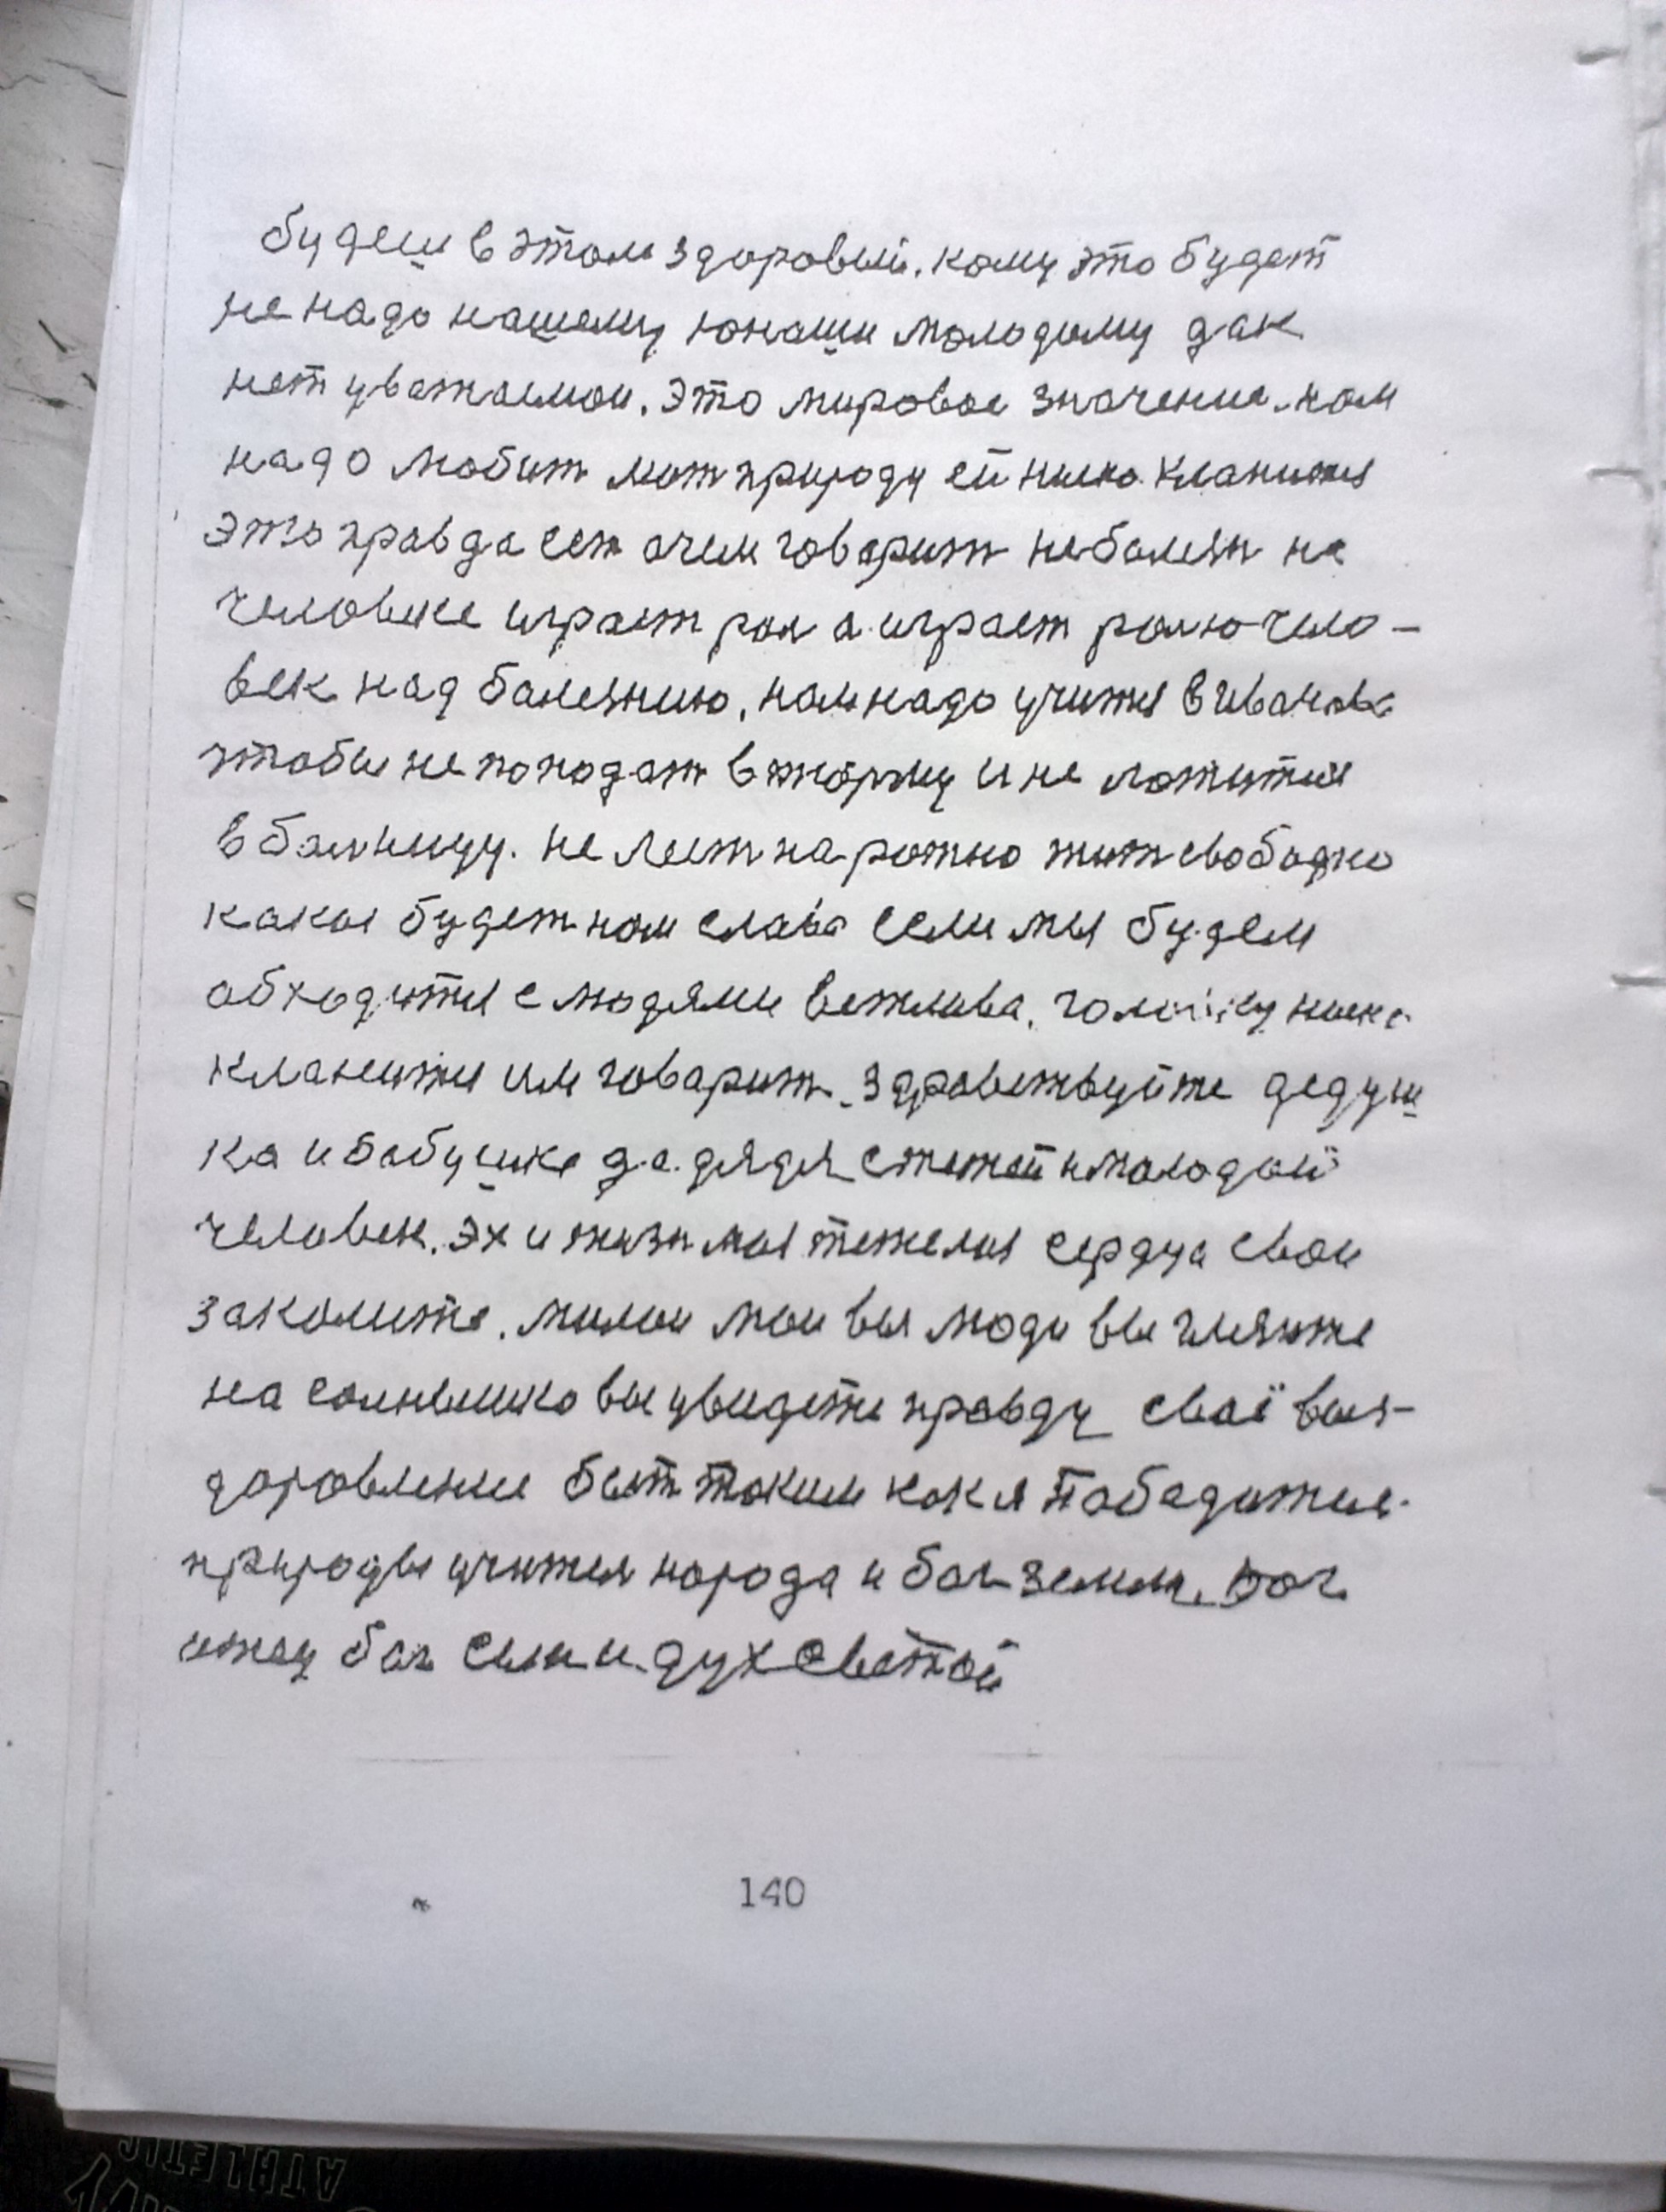 будеш в этом здоровый. кому это будет
не надо нашему юноши молодому дак
нет уважаемои. Это мировое значение. нам
надо любит мат природу ей низко кланится
это правда ест очем говорит неболезн на
человеке играет рол а играет ролю чело-
век над болезнию, нам надо учится в Иванова
чтобы не поподат в тюрму и не ложится
в болницу. не лест на рожно жит свободно
какое будет нам слава если мы будем
обходится с людями вежлива. головку ниско
кланится им говорит. здравствуйте дедуш
ка и бабушка да дядя с тетей и молодой
человек. эх и жизн моя тежелая сердца свои
заколите. милои мои вы люди вы гляните
на солнышко вы увидети правду своё выз-
доровление быт таким как я победителе
природы учителя народа и бог земли. бог
отец бог сын и дух светой
140
ATHLETIC